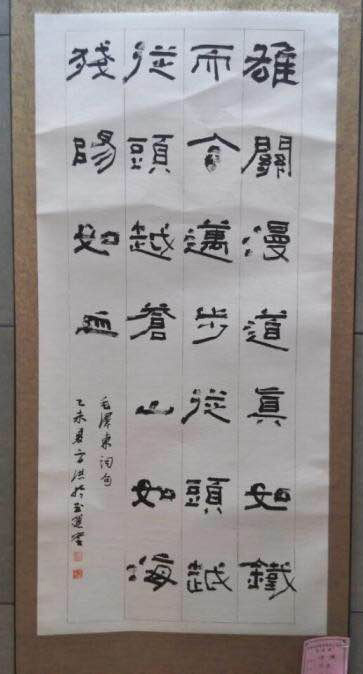 雄關漫道真如鐵
而今邁步從頭越
從頭越蒼山如海
殘陽如血
毛澤東詞句
乙未夏方洪於玉